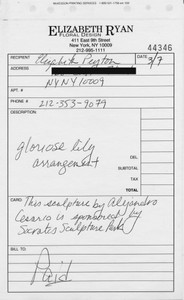 ELIZABETH RYAN
FLORAL DESIGN
411 East 9th Street
New York, NY 10009
212-995-1111
44346
RECIPIENT
Elizabeth Peyton
DATE
2/7
ADDRESS
NY NY 10009
APT. #
PHONE #
212-353-9079
DESCRIPTION:
gloriose lily
arrangement
DEL.
SUBTOTAL
TAX
TOTAL
CARD:
This sculpture by Alejandro
Cesarco is sponsored by
Socrates Sculpture Park
BILL TO:
Paid